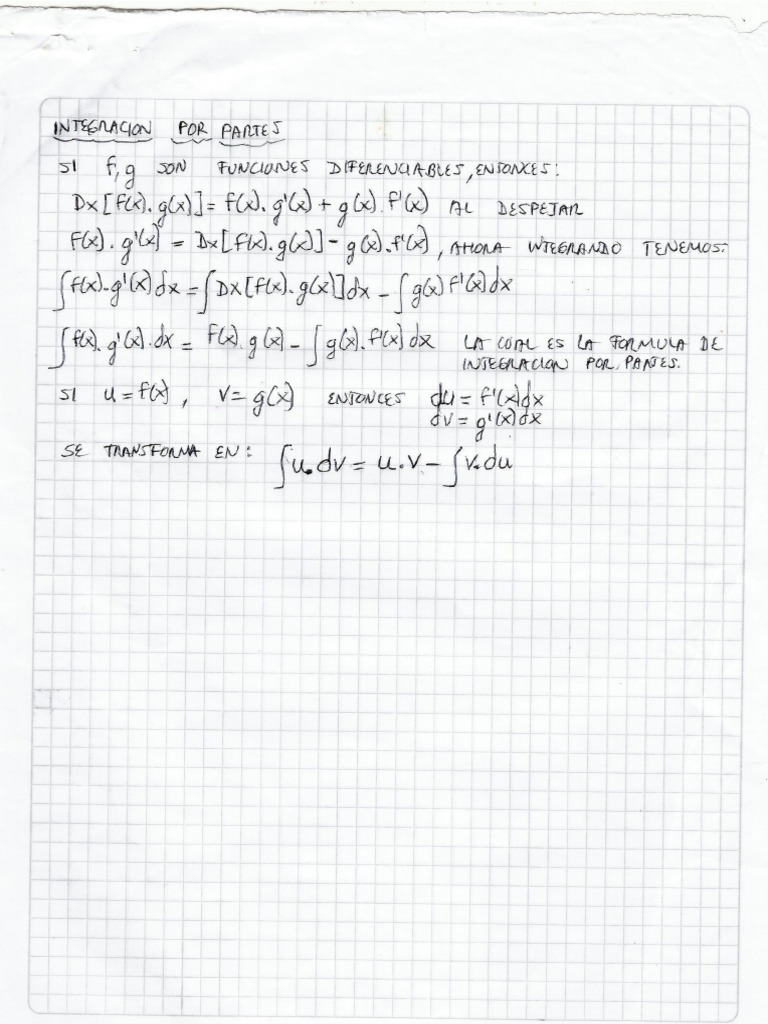 INTEGRACION POR PARTES
SI f,g SON FUNCIONES DIFERENCIABLES, ENTONCES:
Dx[f(x).g(x)]= f(x).g'(x)+g(x).f'(x) AL DESPEJAR
f(x).g'(x) = Dx[f(x).g(x)]-g(x).f'(x), AHORA INTEGRANDO TENEMOS:
∫f(x).g'(x)dx=∫Dx[f(x).g(x)]dx-∫g(x)f'(x)dx
∫f(x).g'(x).dx= f(x).g(x)-∫g(x).f'(x)dx LA CUAL ES LA FORMULA DE
INTEGRACION POR PARTES.
SI u=f(x), v=g(x) ENTONCES du=f'(x)dx
dv=g'(x)dx
SE TRANSFORMA EN: ∫u.dv=u.v-∫v.du